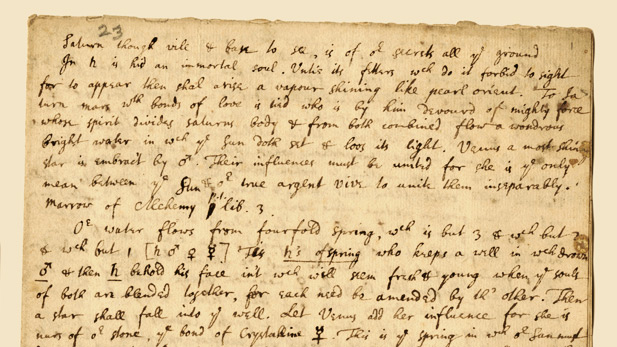 23
Saturn though vile & base to see, is of oʳ secrets all yᵉ ground
In ♄ is hid an immortal soul. Untie its fetters wᶜʰ do it forbid to sight
for to appear then shal arise a vapour shining like pearl orient. To Sa-
turn mars wᵗʰ bonds of love is tied who is by him devourd of mighty force
whose spirit divides saturns body & from both combined flow a wondrous
bright water in wᶜʰ yᵉ Sun doth set & loos its light. Venus a most shin
star is embract by ♂. Their influences must be united for she is yᵉ only
mean between yᵉ Sun & oʳ true argent vive to unite them inseparably.
Marrow of Alchemy pᵗ lib. 3
Oʳ water flows from fourfold spring, wᶜʰ is but 3 & wᶜʰ but 2
& wᶜʰ but 1 [♄ ♂ ♀ ☿] Tis ♄'s ofspring who keeps a well in wᶜʰ drown
♂ & then ♄ behold his face int wᶜʰ will seem fresh & young when yᵉ souls
of both are blended together, for each need be amended by thᵉ other. Then
a star shall fall into yᵉ well. Let Venus add her influence for she is
nurs of oʳ stone, yᵉ bond of Crystalline ☿. This is yᵉ spring in wᶜʰ oʳ Sun must